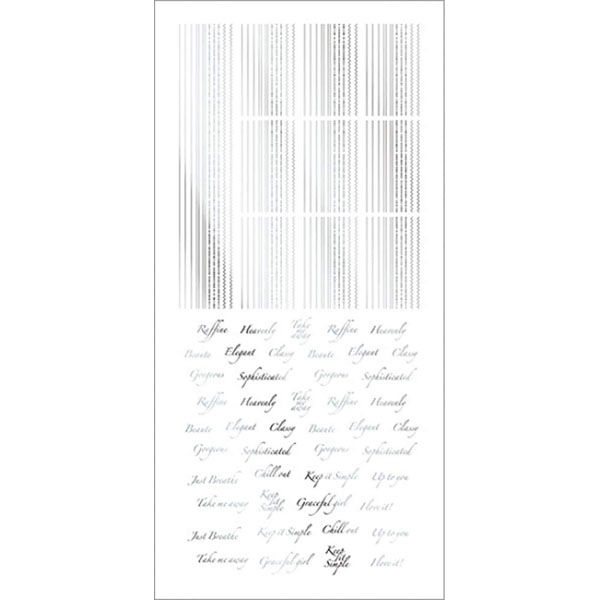 Raffine Heavenly Take me away Raffine Heavenly
Beaute Elegant Classy Beaute Elegant Classy
Gorgeous Sophisticated Gorgeous Sophisticated
Raffine Heavenly Take me away Raffine Heavenly
Beaute Elegant Classy Beaute Elegant Classy
Gorgeous Sophisticated Gorgeous Sophisticated
Just Breathe Chill out Keep it Simple Up to you
Take me away Keep it Simple Graceful girl I love it!
Just Breathe Keep it Simple Chill out Up to you
Take me away Graceful girl Keep it Simple I love it!